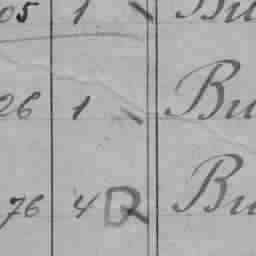 05 1 Bu
26 1 Bu
76 4 R Bu